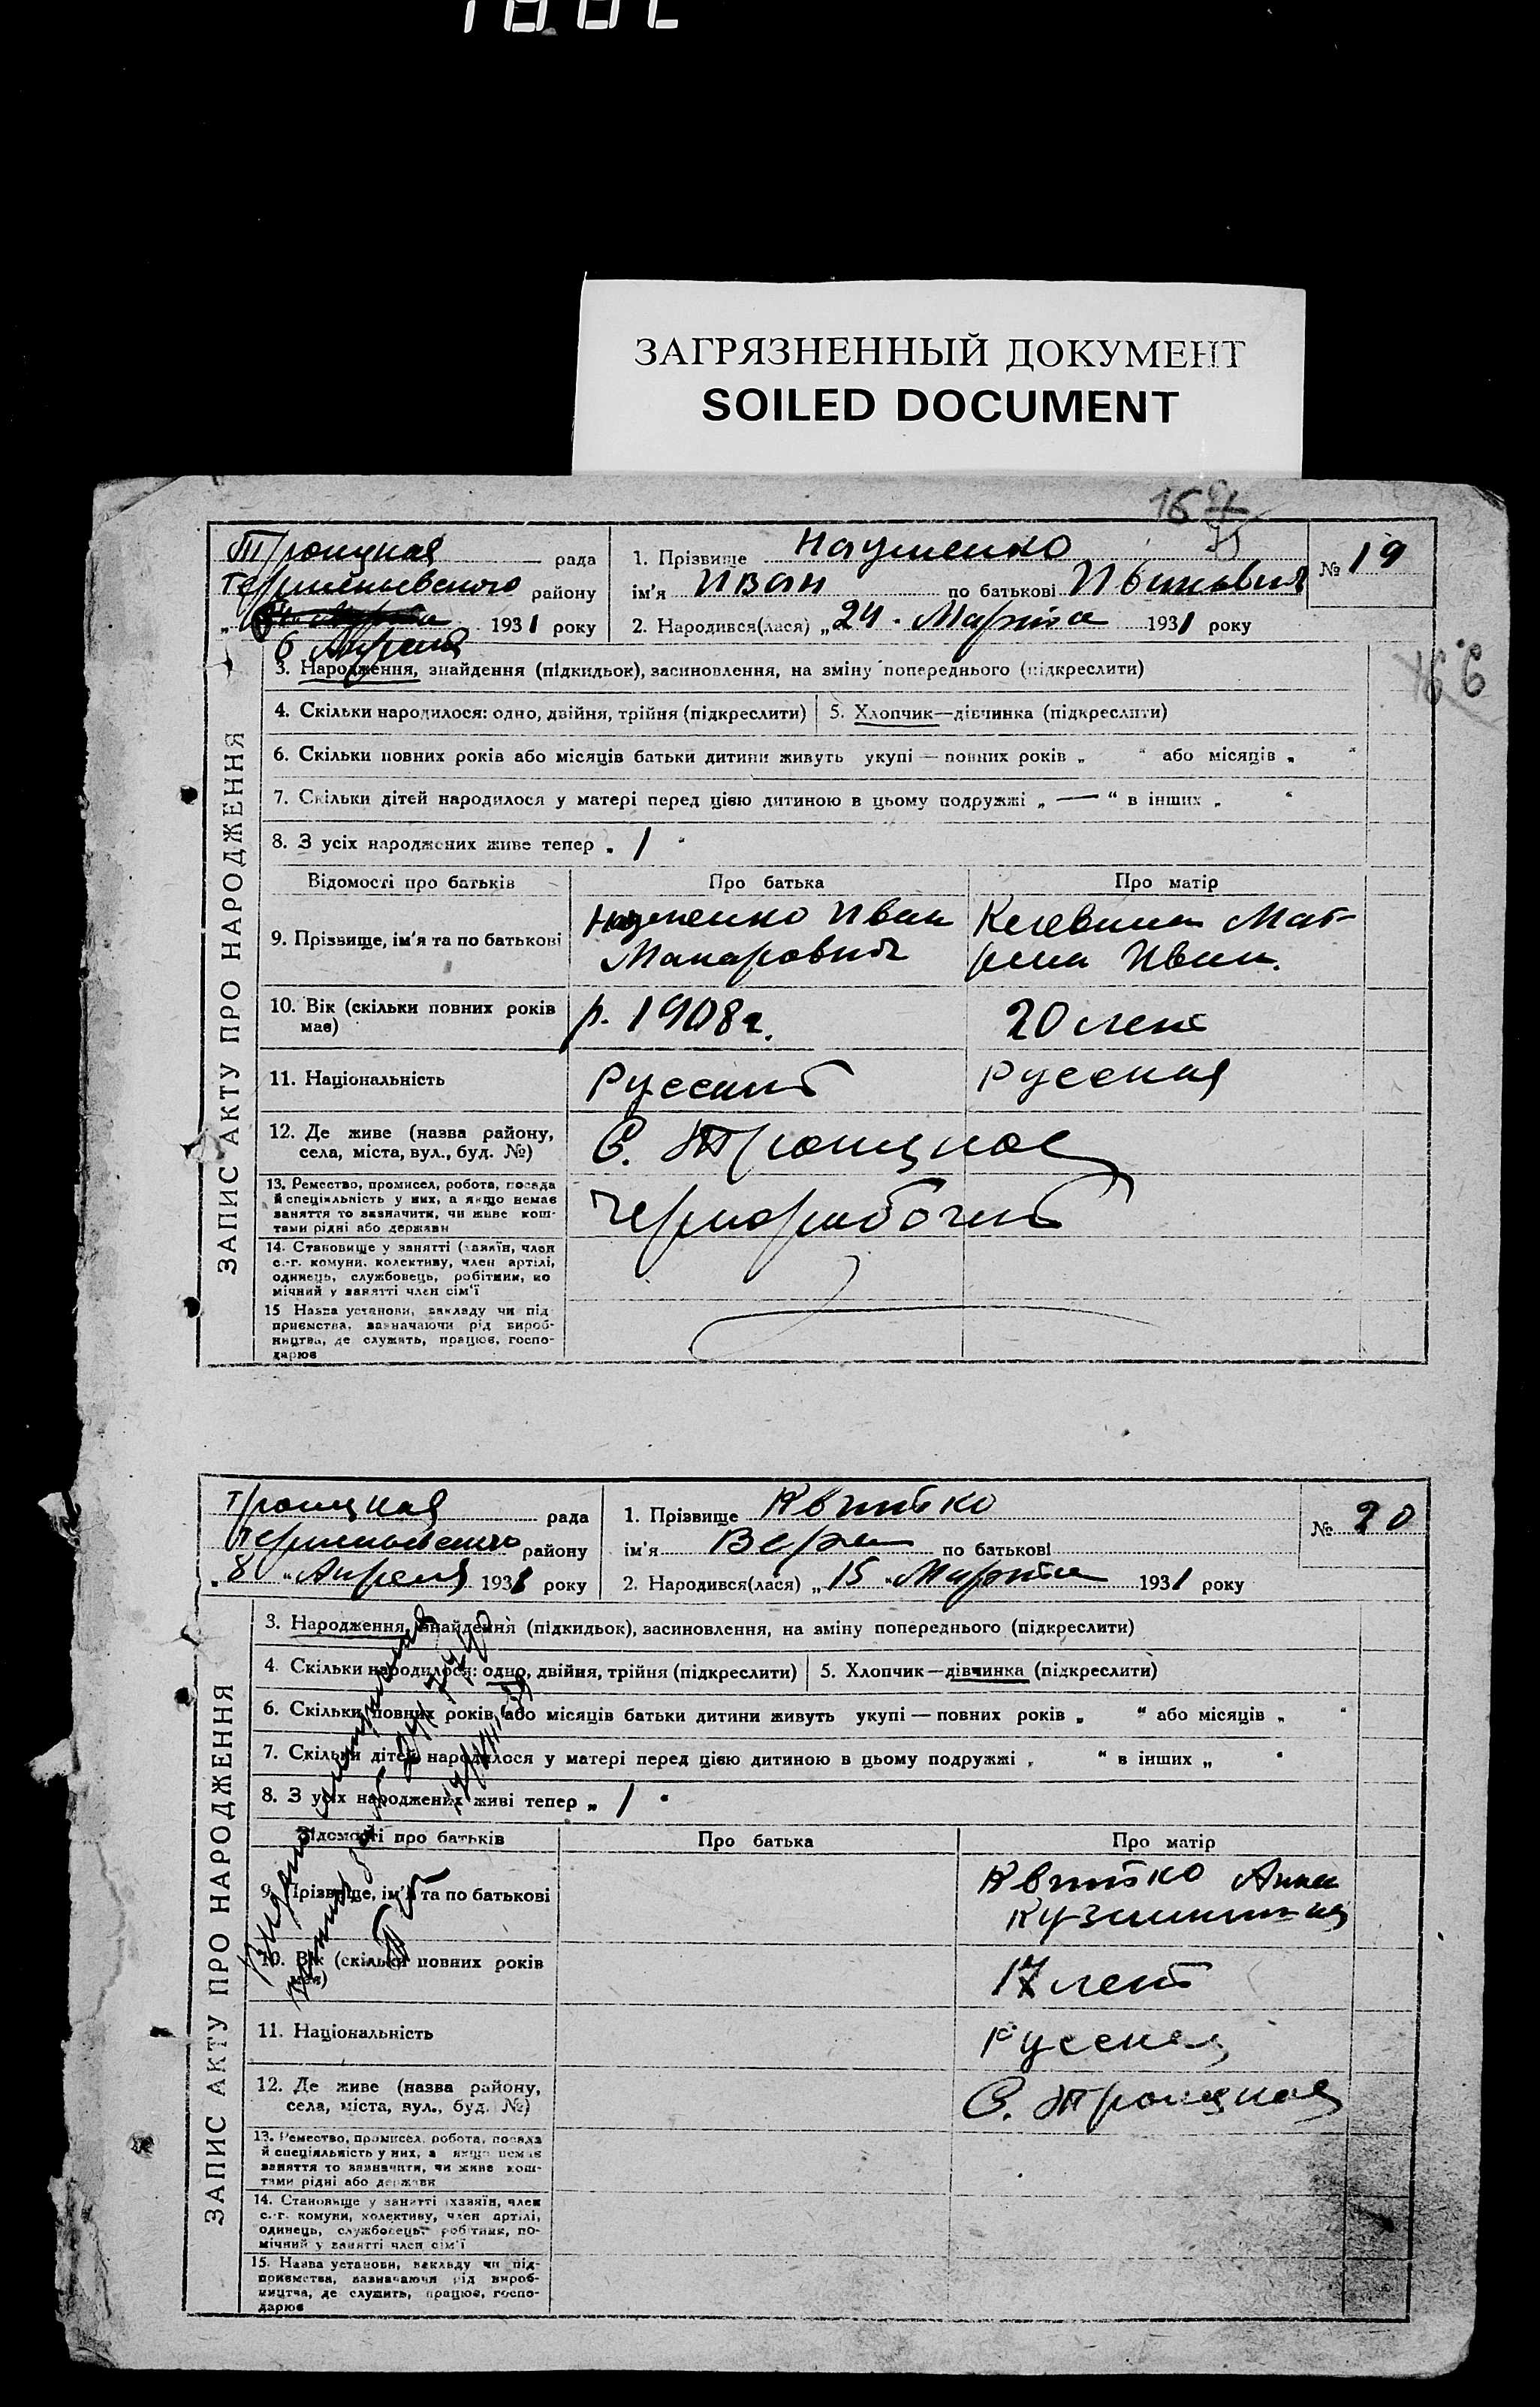 ЗАГРЯЗНЕННЫЙ ДОКУМЕНТ
SOILED DOCUMENT
16
Троицкая рада
району
6 Апреля 1931 року
1. Прізвище Науменко
ім'я Иван по батькові Иванович
2. Народився(лася) „24. Марта 1931 року
№ 19
66
ЗАПИС АКТУ ПРО НАРОДЖЕННЯ
3. Народження, знайдення (підкидьок), засиновлення, на зміну попереднього (підкреслити)
4. Скільки народилося: одно, двійня, трійня (підкреслити) 5. Хлопчик—дівчинка (підкреслити)
6. Скільки повних років або місяців батьки дитини живуть укупі — повних років „ “ або місяців „ “
7. Скільки дітей народилося у матері перед цією дитиною в цьому подружжі „ — “ в інших „ “
8. З усіх народжених живе тепер „ 1 “
Відомості про батьків Про батька Про матір
9. Прізвище, ім'я та по батькові
Науменко Иван
Макарович
Мат-
рена Иван.
10. Вік (скільки повних років
має)
р. 1908 г.
20 лет
11. Національність Русский Русская
12. Де живе (назва району,
села, міста, вул., буд. №)
С. Троицкое
13. Ремество, промисел, робота, посада
й спеціяльність у них, а якщо немає
заняття то зазначити, чи живе кош-
тами рідні або держави
Чернорабочий
14. Становище у занятті (хазяїн, член
с.-г. комуни, колективу, член артілі,
одинець, службовець, робітник, по
мічний у занятті член сім'ї
15 Назва установи, закладу чи під
приємства, зазначаючи рід вироб-
ництва, де служить, працює, госпо-
дарює
Троицкая рада
району
„8“ Апреля 1931 року
1. Прізвище Квитко
ім'я Вера по батькові
2. Народився(лася) „15“ Марта 1931 року
№ 20
ЗАПИС АКТУ ПРО НАРОДЖЕННЯ
3. Народження, знайдення (підкидьок), засиновлення, на зміну попереднього (підкреслити)
4. Скільки народилося: одно, двійня, трійня (підкреслити) 5. Хлопчик—дівчинка (підкреслити)
6. Скільки повних років або місяців батьки дитини живуть укупі — повних років „ “ або місяців „ “
7. Скільки дітей народилося у матері перед цією дитиною в цьому подружжі „ “ в інших „ “
8. З усіх народжених живі тепер „ 1 “
Відомості про батьків Про батька Про матір
9. Прізвище, ім'я та по батькові
Квитко Анна
10. Вік (скільки повних років
має)
17 лет
11. Національність Русская
12. Де живе (назва району,
села, міста, вул., буд. №)
С. Троицкое
13. Ремество, промисел, робота, посада
й спеціяльність у них, а якщо немає
заняття то зазначити, чи живе кош-
тами рідні або держави
14. Становище у занятті (хазяїн, член
с.-г. комуни, колективу, член артілі,
одинець, службовець, робітник, по-
мічний у занятті член сім'ї
15. Назва установи, закладу чи під-
приємства, зазначаючи рід вироб-
ництва, де служить, працює, госпо-
дарює